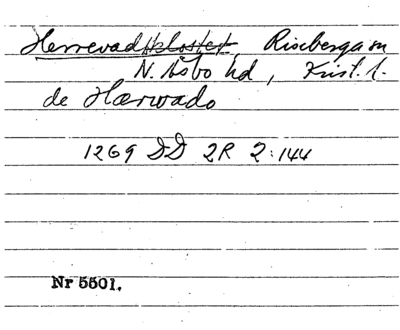 Herrevadskloster, Riseberga sn
N. Åsbo hd, Krist. l.
de Hærwado
1269 DD 2R 2:144
Nr 5501.